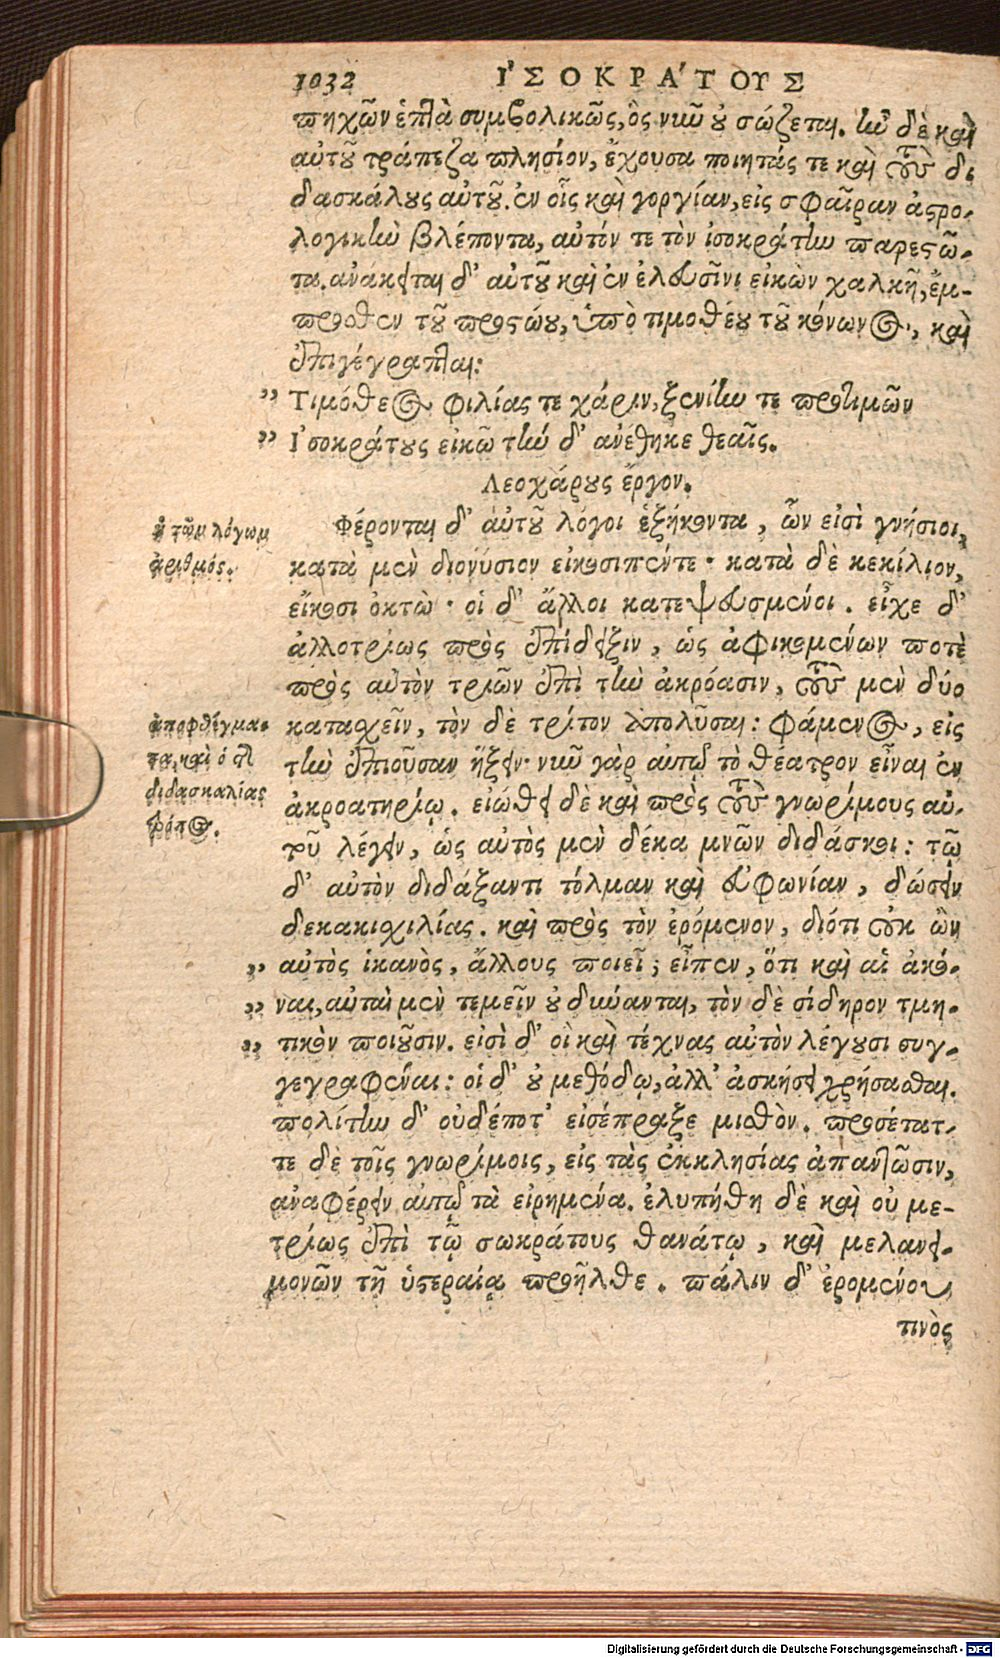 1032 ἸΣΟΚΡΆΤΟΥΣ
πηχῶν ἑπτὰ συμβολικῶς, ὃς νιῦ οὐ σώζεται. ἰῶ δὲ καὶ
αὐτοῦ τράπεζα πλησίον, ἔχουσα ποιητάς τε καὶ τοὺς δι
δασκάλους αὐτοῦ. ἐν οἷς καὶ γοργίαν, εἰς σφαῖραν ἀστρο-
λογικὴν βλέποντα, αὐτόν τε τὸν ἰσοκράτην παρεστῶ-
τα. ἀνάκειται δ' αὐτοῦ καὶ ἐν ἐλευσῖνι εἰκὼν χαλκῆ, ἔμ-
προσθεν τοῦ προστῴου, ὑπὸ τιμοθέου τοῦ κόνωνος, καὶ
ἐπιγέγραπται:
" Τιμόθεος φιλίας τε χάριν, ξενίην τε προτιμῶν
" Ἰσοκράτους εἰκὼ τὴν δ' ἀνέθηκε θεαῖς.
Λεοχάρους ἔργον.
Φέρονται δ' αὐτοῦ λόγοι ἑξήκοντα, ὧν εἰσὶ γνήσιοι,
κατὰ μὲν διονύσιον εἰκοσιπέντε· κατὰ δὲ κεκίλιον,
εἴκοσι ὀκτὼ· οἱ δ' ἄλλοι κατεψευσμένοι. εἶχε δ'
ἀλλοτρίως πρὸς ἐπίδειξιν, ὡς ἀφικομένων ποτὲ
πρὸς αὐτὸν τριῶν ἐπὶ τὴν ἀκρόασιν, τοὺς μὲν δύο
καταχεῖν, τὸν δὲ τρίτον ἀπολῦσαι: φάμενος, εἰς
τὴν ἐπιοῦσαν ἥξειν· νῦν γὰρ αὐτῷ τὸ θέατρον εἶναι ἐν
ἀκροατηρίῳ. εἰώθει δὲ καὶ πρὸς τοὺς γνωρίμους αὐ-
τοῦ λέγειν, ὡς αὐτὸς μὲν δέκα μνῶν διδάσκοι: τῷ
δ' αὐτὸν διδάξαντι τόλμαν καὶ εὐφωνίαν, δώσειν
δεκακισχιλίας. καὶ πρὸς τὸν ἐρόμενον, διότι οὐκ ὢν
" αὐτὸς ἱκανὸς, ἄλλους ποιεῖ; εἶπεν, ὅτι καὶ αἱ ἀκό-
" ναι, αὐταὶ μὲν τεμεῖν οὐ δύνανται, τὸν δὲ σίδηρον τμη-
" τικὸν ποιοῦσιν. εἰσὶ δ' οἳ καὶ τέχνας αὐτὸν λέγουσι συγ-
γεγραφέναι: οἱ δ' οὐ μεθόδῳ, ἀλλ' ἀσκήσει χρήσασθαι.
πολίτην δ' οὐδέποτ' εἰσέπραξε μισθὸν. προσέταττ-
τε δὲ τοῖς γνωρίμοις, εἰς τὰς ἐκκλησίας ἀπαντῶσιν,
ἀναφέρειν αὐτῷ τὰ εἰρημένα. ἐλυπήθη δὲ καὶ οὐ με-
τρίως ἐπὶ τῷ σωκράτους θανάτῳ, καὶ μελανει-
μονῶν τῇ ὑστεραίᾳ προῆλθε. πάλιν δ' ἐρομένου
τινὸς
ἡ τῶν λόγων
ἀριθμός.
ἀποφθέγμα-
τα, καὶ ὁ τῆ
διδασκαλίας
τρόπος.
Digitalisierung gefördert durch die Deutsche Forschungsgemeinschaft - DFG